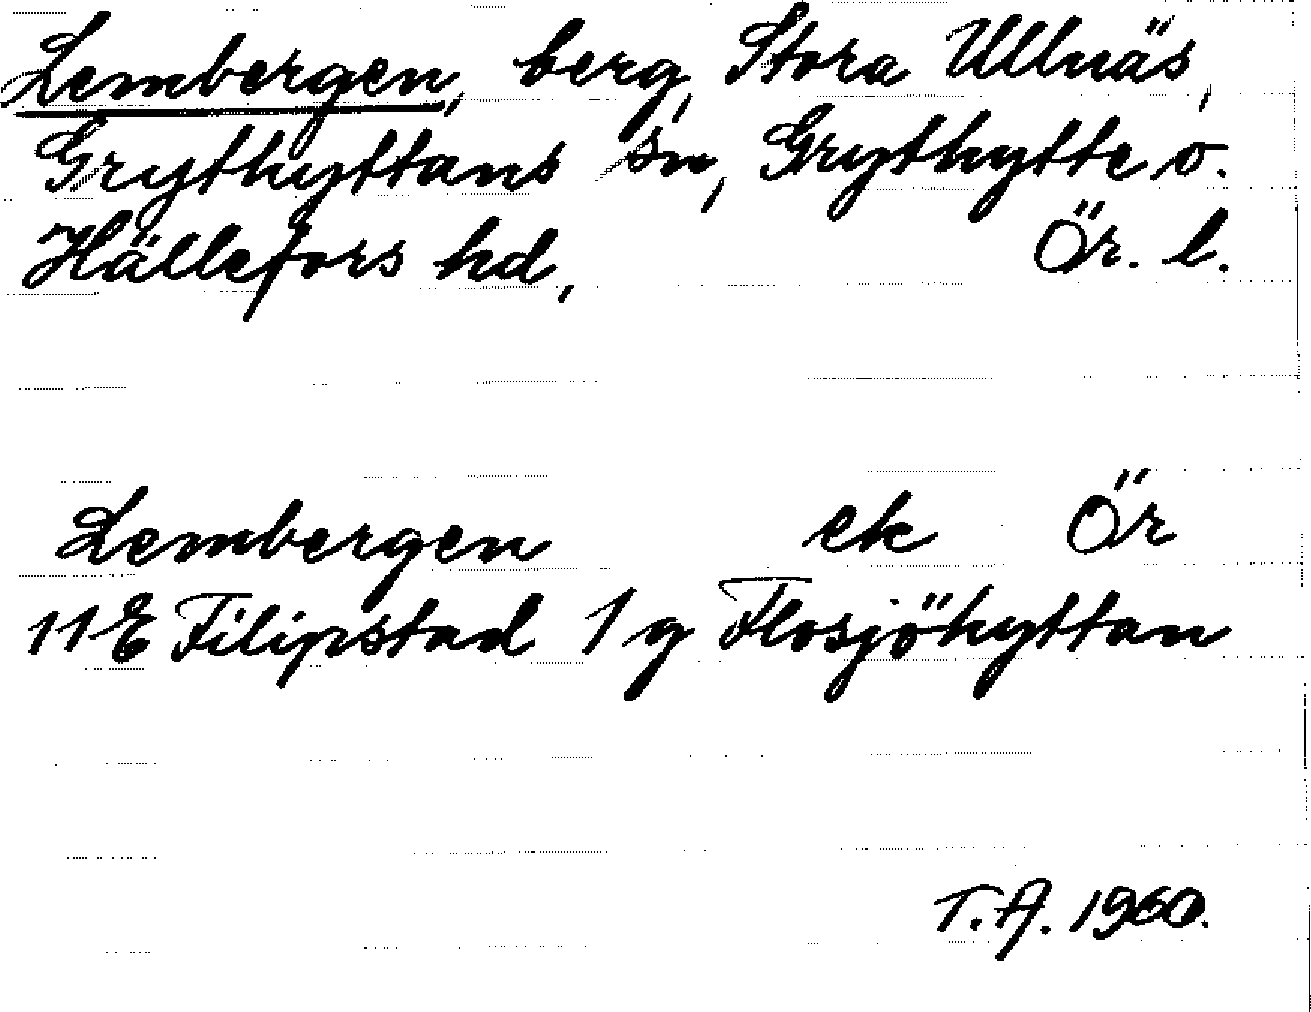 Lembergen, berg, Stora Ullnäs,
Grythyttans sn, Grythytte o.
Hällefors hd, Ör. l.
Lembergen ek Ör
11E Filipstad 1 g Flosjöhyttan
T.A. 1960.